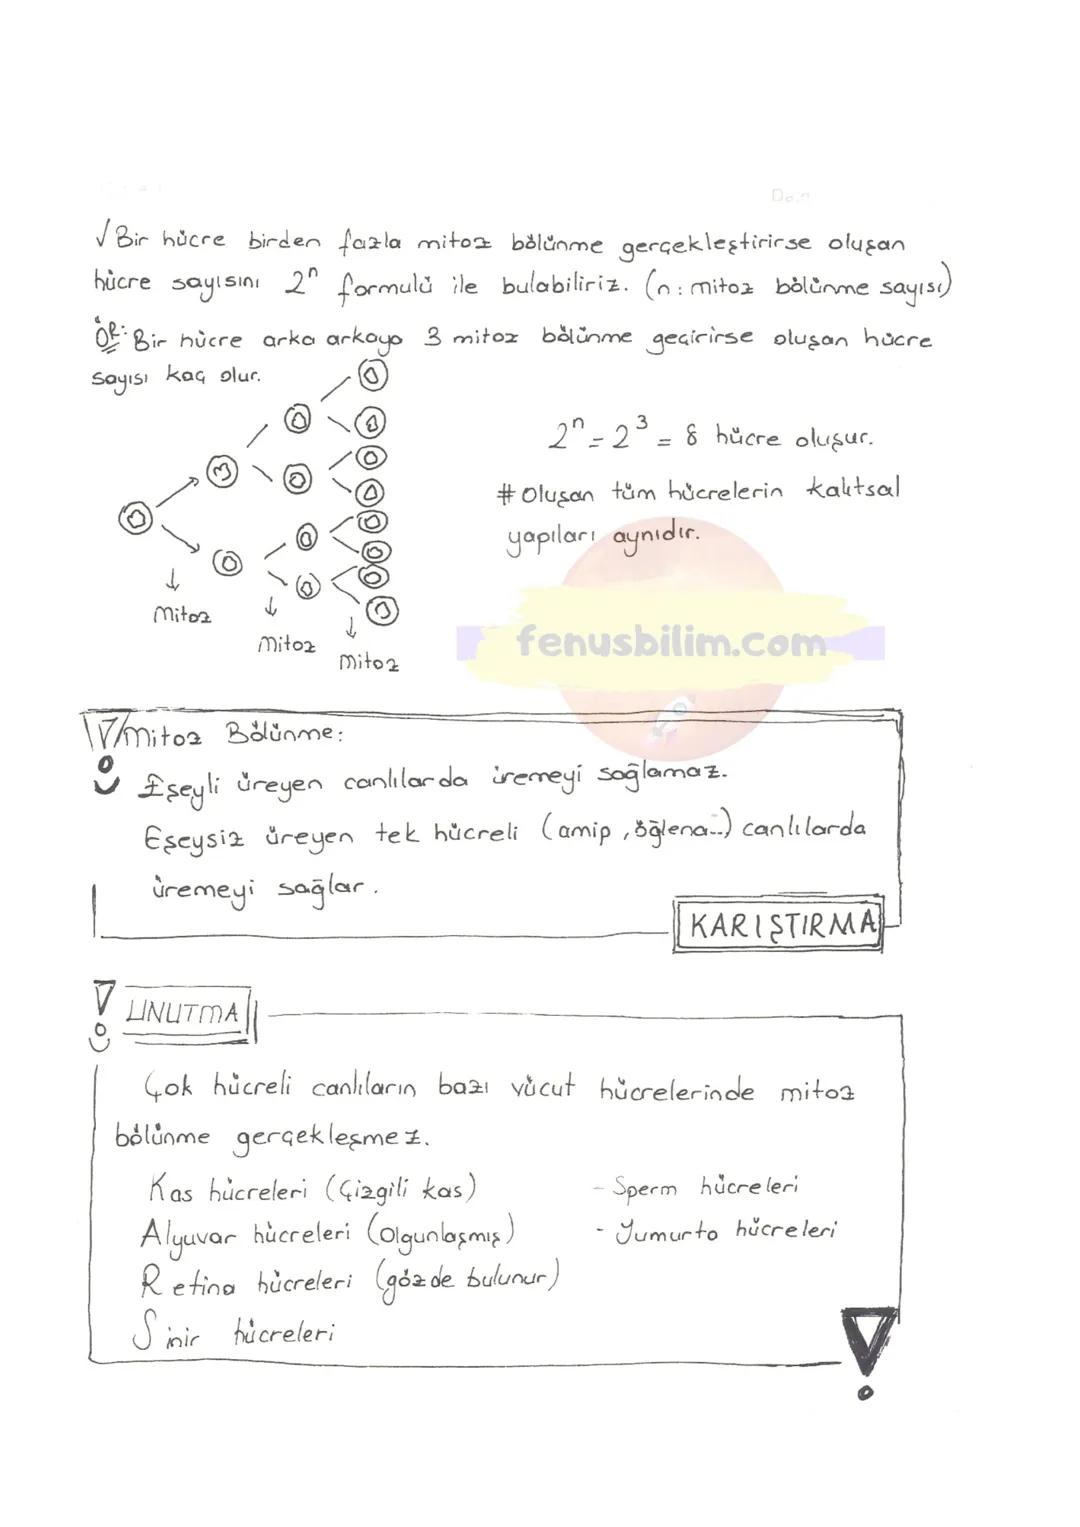 √ Bir hücre birden fazla mitoz bölünme gerçekleştirirse oluşan
hücre sayısını 2ⁿ formülü ile bulabiliriz. (n: mitoz bölünme sayısı)
ÖR: Bir hücre arka arkaya 3 mitoz bölünme geçirirse oluşan hücre
sayısı kaç olur.
2ⁿ = 2³ = 8 hücre oluşur.
# Oluşan tüm hücrelerin kalıtsal
yapıları aynıdır.
Mitoz
Mitoz
Mitoz
fenusbilim.com
Mitoz Bölünme:
Eşeyli üreyen canlılarda üremeyi sağlamaz.
Eşeysiz üreyen tek hücreli (amip, öğlena..) canlılarda
üremeyi sağlar.
KARIŞTIRMA
UNUTMA
Çok hücreli canlıların bazı vücut hücrelerinde mitoz
bölünme gerçekleşmez.
Kas hücreleri (Çizgili kas)
Alyuvar hücreleri (Olgunlaşmış)
Retina hücreleri (gözde bulunur)
Sinir hücreleri
- Sperm hücreleri
- Yumurta hücreleri